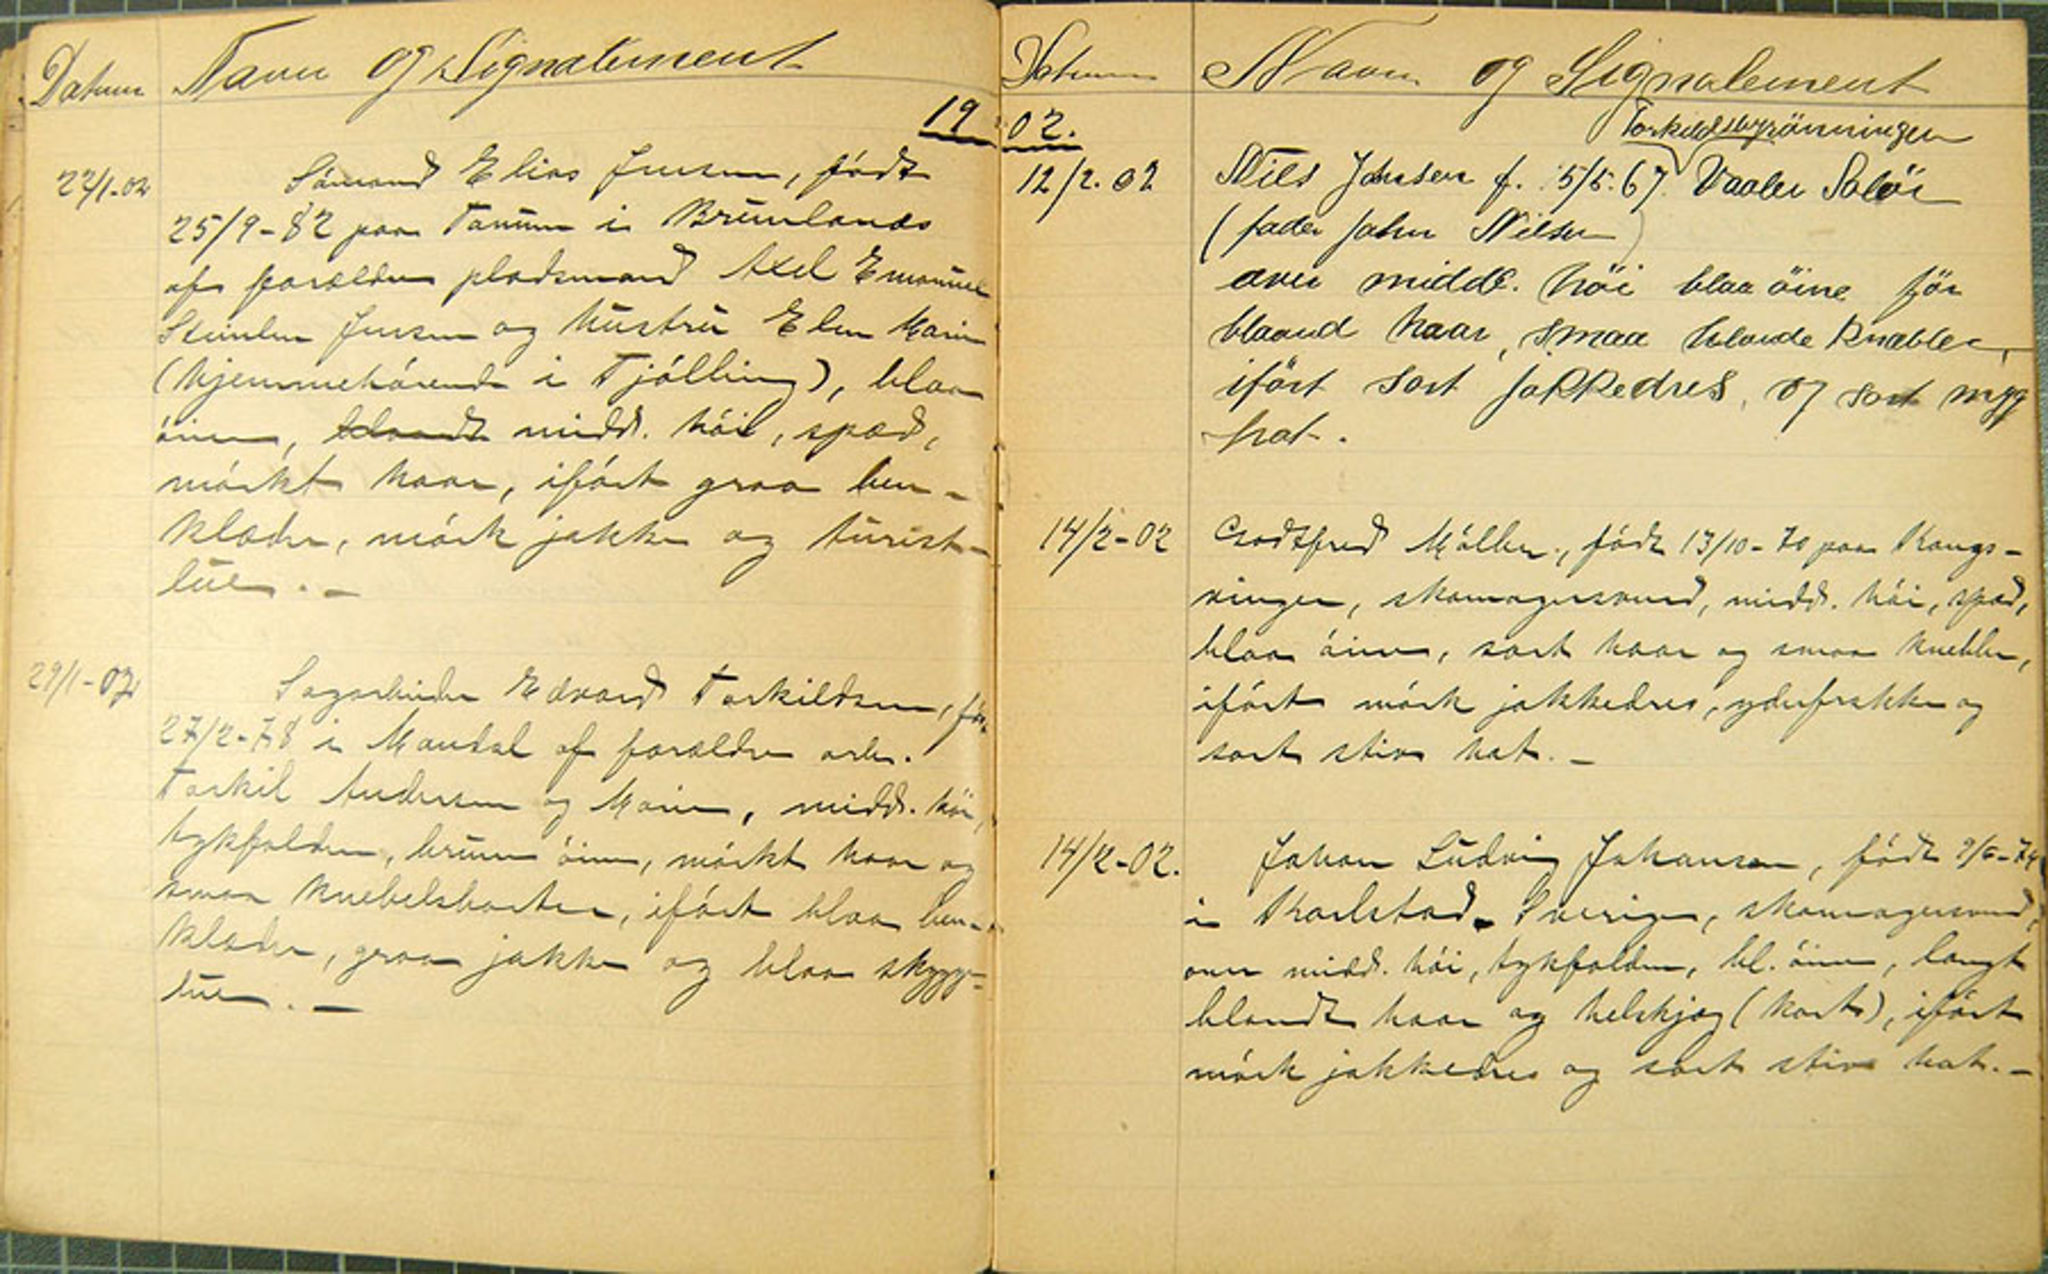 Datum Navn og Signalement
19
22/1-02 Sömand Elias Jensen, födt
25/9-82 paa Tanum i Brunlanæs
af forældre pladsmand Axel Emanuel
Jensen og hustru Elen Marie
(hjemmehörende i Tjölling), blaa
öine, blaandt midd. höi, spæd,
mörkt haar, iført graa ben-
klæder, mörk jakke og turist-
lue. —
29/1-02 Sagarbeider Edvard Torkildsen, föd
27/2-78 i Mandal af forældre arb.
Torkil Andersen og Marie, midd. höi,
tykfalden, brune öine, mörkt haar og
smaa knebelsbarter, iført blaa ben-
klæder, graa jakke og blaa skygge-
lue. —
Datum Navn og Signalement
02.
Torkildsbyrönningen
12/2.02 Nils Johnsen f. 15/5.67. Vaaler Solör
(fader John Nilsen)
over midd. höi blaa öine för
blaand haar, smaa blonde Knebler,
ifört sort jakkedres, og sort myg
hat.
14/2-02 Godtfred Möller, födt 13/10-70 paa Kongs-
vinger, skomagersvend, midd. höi, spæd,
blaa öine, sort haar og smaa knebler,
ifört mörk jakkedres, yderfrakke og
sort stiv hat. —
14/2-02. Johan Ludvig Johansen, födt 9/6-74
i Karlstad Sverige, skomagersvend,
over midd. höi, tykfalden, bl. öine, langt
blondt haar og helskjæg (kort), ifört
mörk jakkedres og sort stiv hat. —